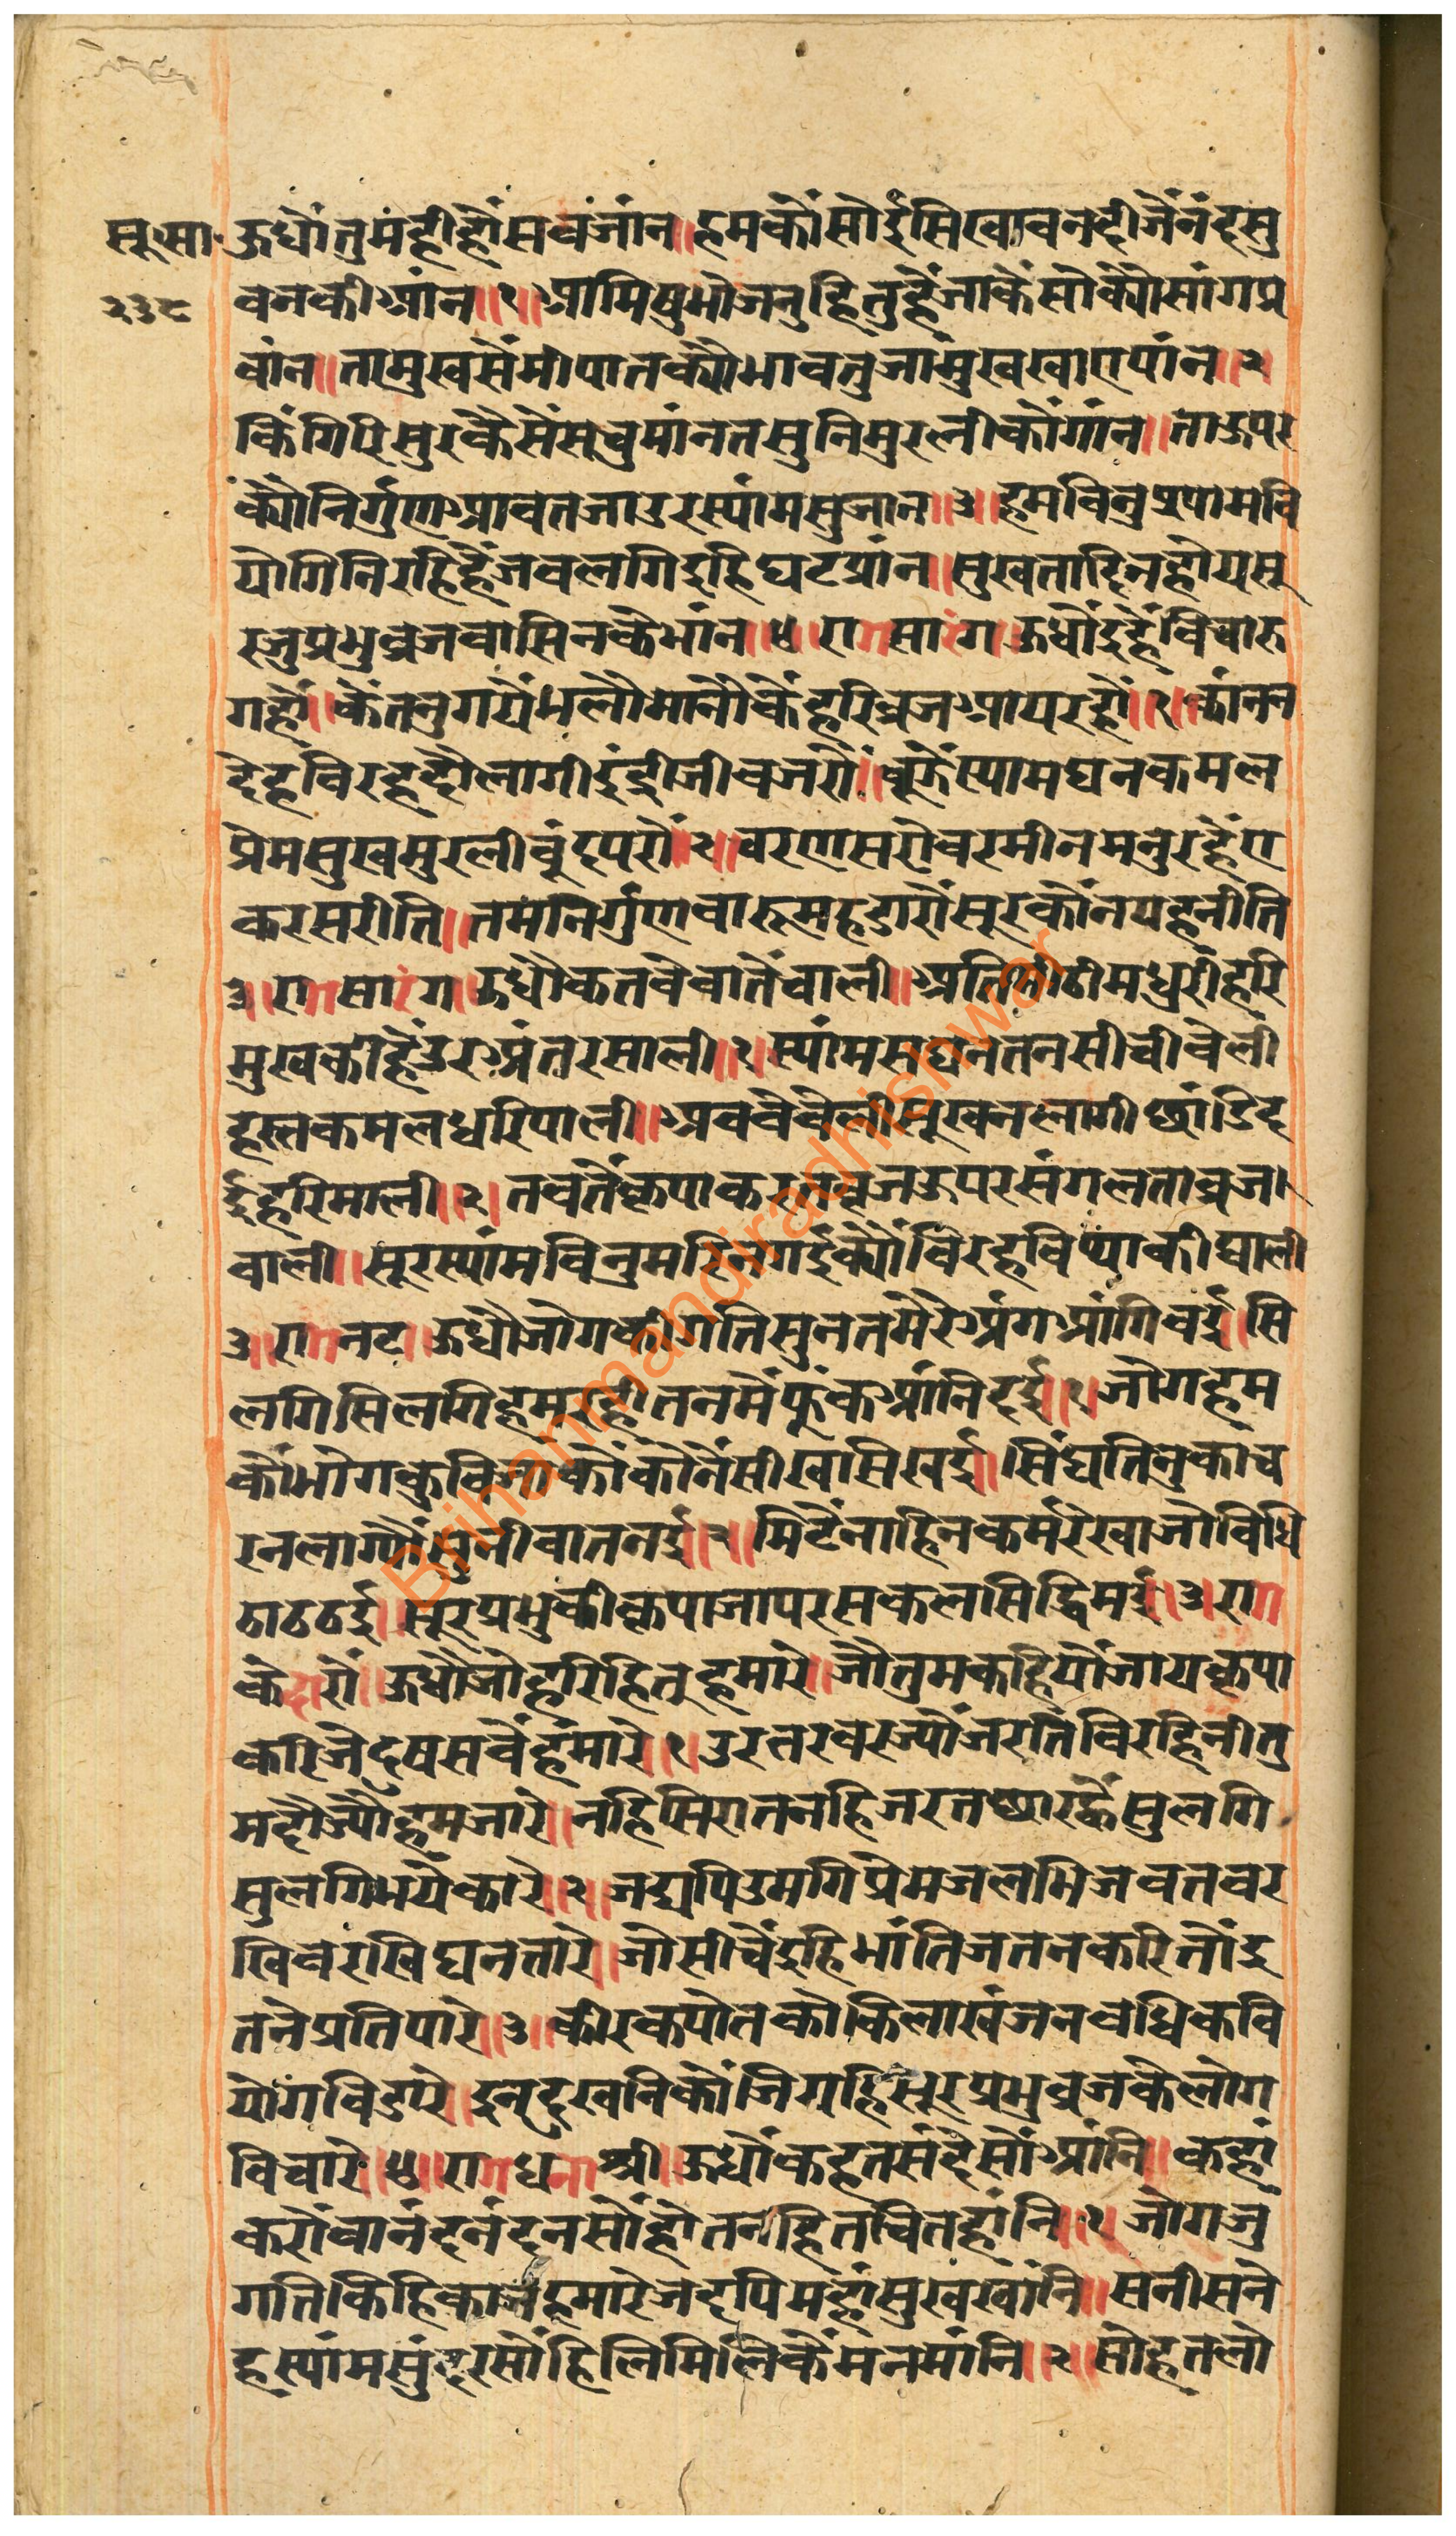 सू.सा. ऊधौंतुमंहीहौंसवंजांन॥हमकौंसोईसिखावनदीजैंनंदसु
२३८ वनकीआंन॥१॥आमिषुभोजनुहितुहैंजाकेंसोक्यौसांगप्र
वांन॥तामुखसेंमीपातक्यौभावतुजामुंखखाएपांन॥२
किंगिरिसुरकैसैंसचुमांनतसुनिमुरलीकौंगांन॥ताऊपर
क्यौंनिर्गुणआवतजाउरस्यांमसुजान॥३॥हमविनुश्यामवि
योगिनिरहिहैंजवलगिइहिघटप्रांन॥सुखतादिनहोयसू
रजुप्रभुव्रजवासिनकेभांन॥४॥रागसारंग॥ऊधौंइहैंविचारु
गहौं॥कैंतनुगयेंभलौमानौकैंहरिव्रजआयरहौं॥१॥कांनन
देहविरहदौलागीइंद्रीजीवजरौं॥वूझैंस्यामघनकमल
प्रेमसुखमुरलीवुंदपरौं॥२॥चरणसरोवरमीनमनुरहैंए
करसरीति॥तमनिर्गुणवारूमहडारौंसूरकौंनयहनीति
३॥रागसारंग॥ऊधौकतवेवातेंचाली॥अतिमीठीमधुरीहरि
मुखकीहैंउरअंतरसाली॥१॥स्यांमसघनतनसीचीवेली
हस्तकमलधरिपाली॥अववेवेलीसूखनलागीछांडिद
ईहरिमाली॥२॥तवतेंकृपाकरतव्रजऊपरसंगलताव्रज
वाली॥सूरस्यांमविनुमरिनगईक्यौंविरहविथाकीघाली
३॥रागनट॥ऊधौजोगकीगतिसुनतमेरेअंगआगिवई॥सि
लगिसिलगिहमरहीतनमेंफुंकआंनिदई॥१॥जोगहम
कौंभोगकुविजाकौंकौंनैंसीखसिखई॥सिंघतिनुकाच
रनलाग्यौंसुनीवातनई॥२॥मिटेंनाहिनकर्मरेखाजोविधि
ठाठठई॥सूरप्रभुकीकृपाजापरसकलसिद्धिमई॥३॥राग
केदारौं॥ऊधौजौहरिहितूहमारे॥जौतुमकहियौंजायकृपा
करिजेदुषसवेंहंमारे॥१॥उरतरवरज्यौंजरतिविरहिनीतु
मदौज्यौंहमजारे॥नहिसिरातनहिजरतछारह्वैसुलगि
सुलगिभयेकारे॥२॥जद्यपिउमगिप्रेमजलभिजवतवर
खिवरखिघनतारे॥जोसीचेंइहिभांतिजतनकरितोंइ
तनेप्रतिपारे॥३॥कीरकपोतकोकिलाखंजनवधिकवि
योगविडारे॥इनदुखनिकौंजियहिसूरप्रभुव्रजकेलोग
विचारे॥४॥रागधनाश्री॥ऊधौंकहतसंदेसोंआंनि॥कहां
करौंवानंदनंदनसौंहोतनहितचितहांनि॥१॥जोगजु
गतिकिहिकाजहमारेजदपिमहांसुखखांनि॥सनीसने
हस्यांमसुंदरसौंहिलिमिलिकैंमनमांनि॥२॥सोहतलो